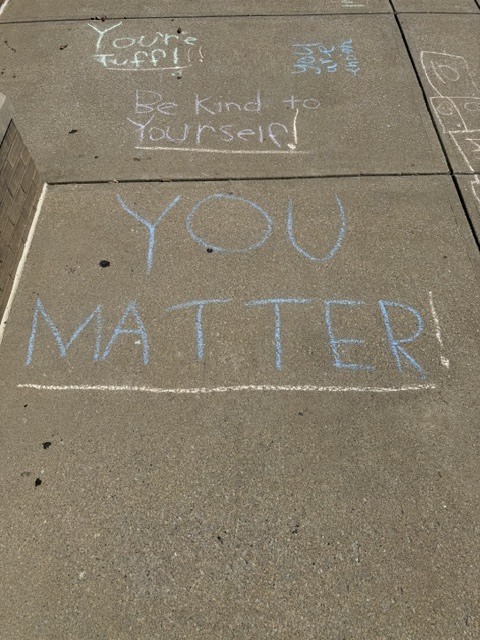 You're
Tuff!!!
You
are
Be Kind to
Yourself!
YOU
MATTER!